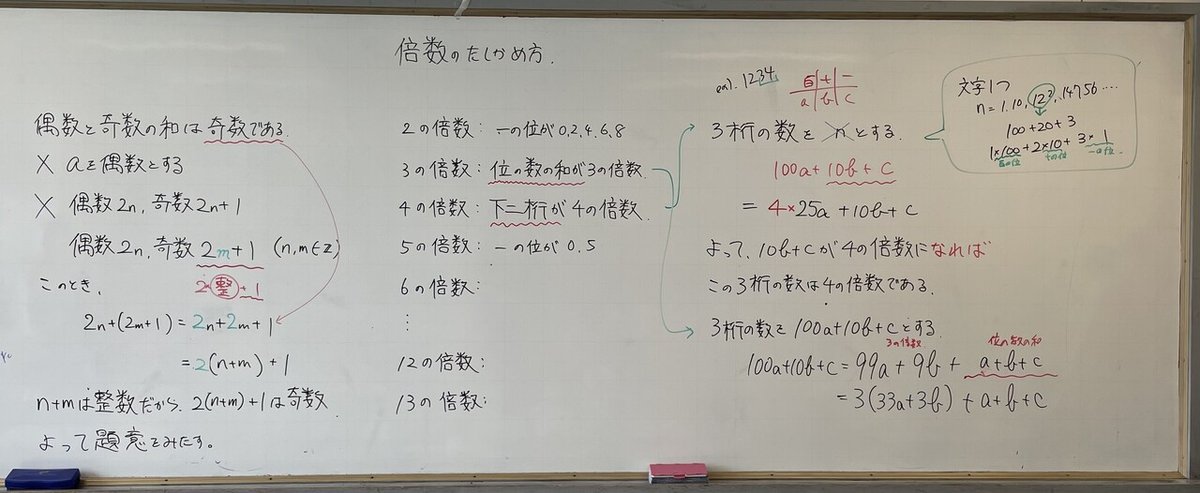 倍数のたしかめ方.
偶数と奇数の和は奇数である.
× aを偶数とする
× 偶数2n, 奇数2n+1
偶数2n, 奇数2m+1 (n,m∈Z)
このとき、 2×整+1
2n+(2m+1) = 2n+2m+1
= 2(n+m)+1
n+mは整数だから、2(n+m)+1は奇数
よって題意をみたす。
2の倍数: 一の位が0,2,4,6,8
3の倍数: 位の数の和が3の倍数.
4の倍数: 下二桁が4の倍数.
5の倍数: 一の位が0.5
6の倍数:
⋮
12の倍数:
13の倍数:
ex). 1234
百|十|一
a|b|c
3桁の数を n とする.
100a+10b+c
= 4×25a+10b+c
よって、10b+cが4の倍数になれば
この3桁の数は4の倍数である.
3桁の数を100a+10b+cとする.
3の倍数 位の数の和
100a+10b+c = 99a+9b + a+b+c
= 3(33a+3b)+a+b+c
文字1つ
n = 1.10, 123, .14756 ....
100+20+3
1×100+2×10+3×1
百の位 十の位 一の位.